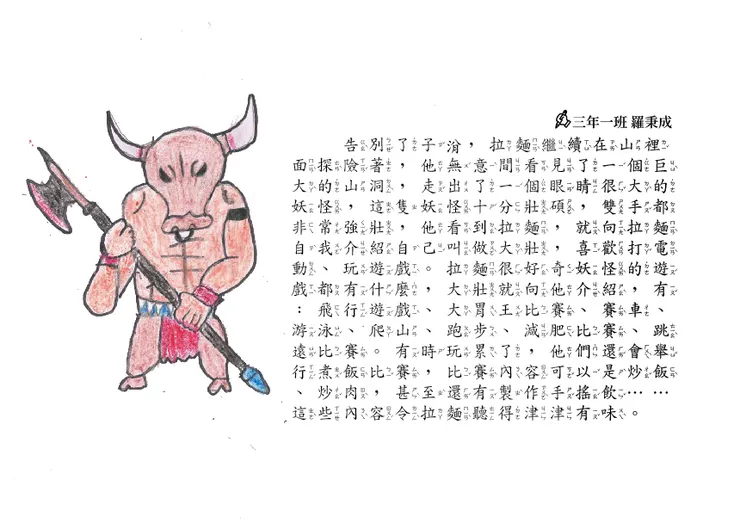 三年一班 羅秉成
告別了子淯，拉麵繼續在山裡
面探險著，他無意間看見了一個巨
大的山洞，走出了一個眼睛很大的
妖怪，這隻妖怪十分壯碩，雙手都
非常強壯，他看到拉麵，就向拉麵
自我介紹自己叫做大壯，喜歡打電
動、玩遊戲。拉麵很好奇妖怪的遊
戲都有什麼，大壯就向他介紹，有
：飛行遊戲、大胃王比賽、賽車、
游泳、爬山、跑步、減肥比賽、跳
遠比賽。有時玩累了，他們還會舉
行煮飯比賽，比賽內容可以是炒飯
、炒肉，甚至還有製作手搖飲……
這些內容令拉麵聽得津津有味。